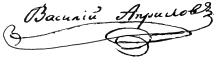 Василій Априловъ